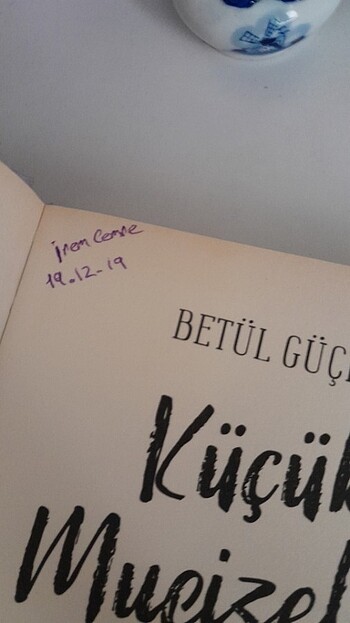 İrem Cemre
19.12-19
BETÜL GÜÇ
Küçük
Mucizel